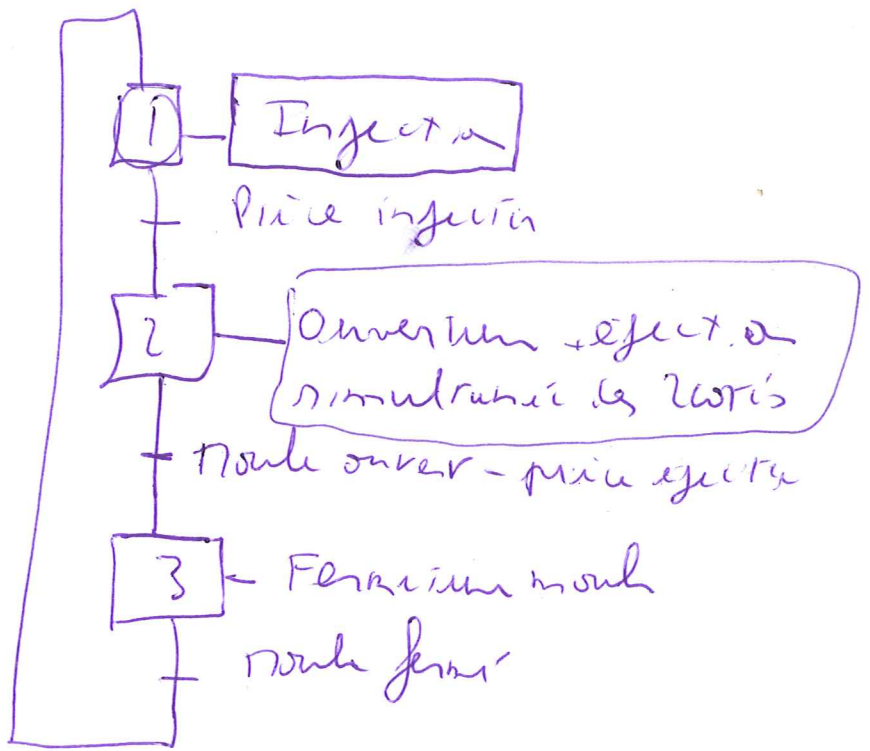 1 Injection
Pièce injectée
2 Ouverture + éjection
simultanée des 2 cotés
Moule ouvert - pièce ejectée
3 Fermeture moule
Moule fermé